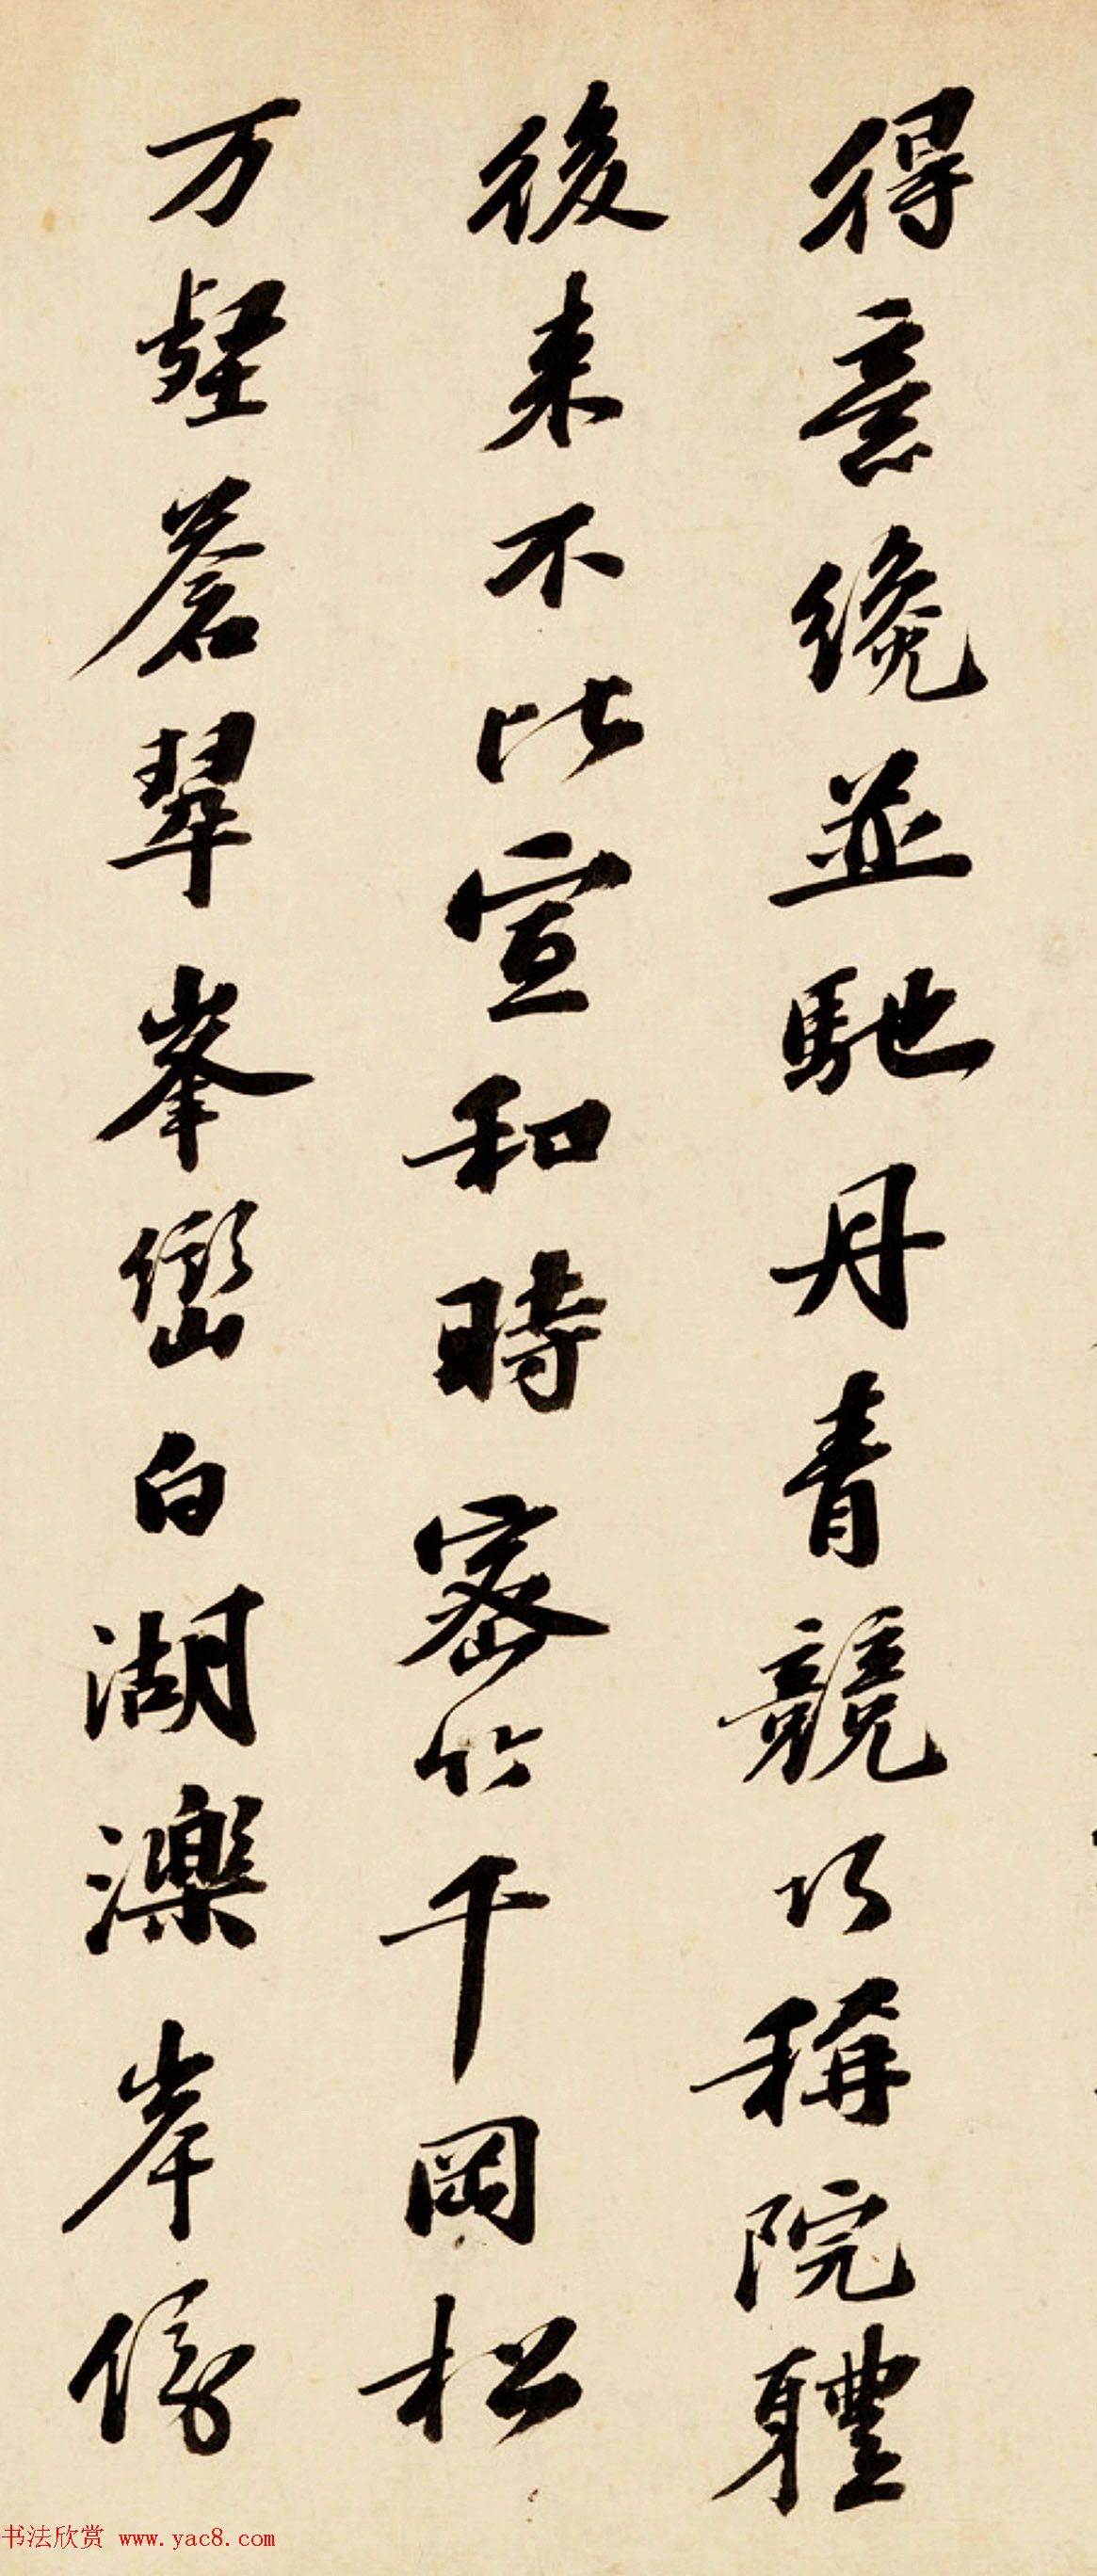 得意纔並馳丹青競巧稱院軆
後来不比宣和時密竹千岡松
万壑蒼翠峯巒白湖濼岸傍
书法欣赏 www.yac8.com